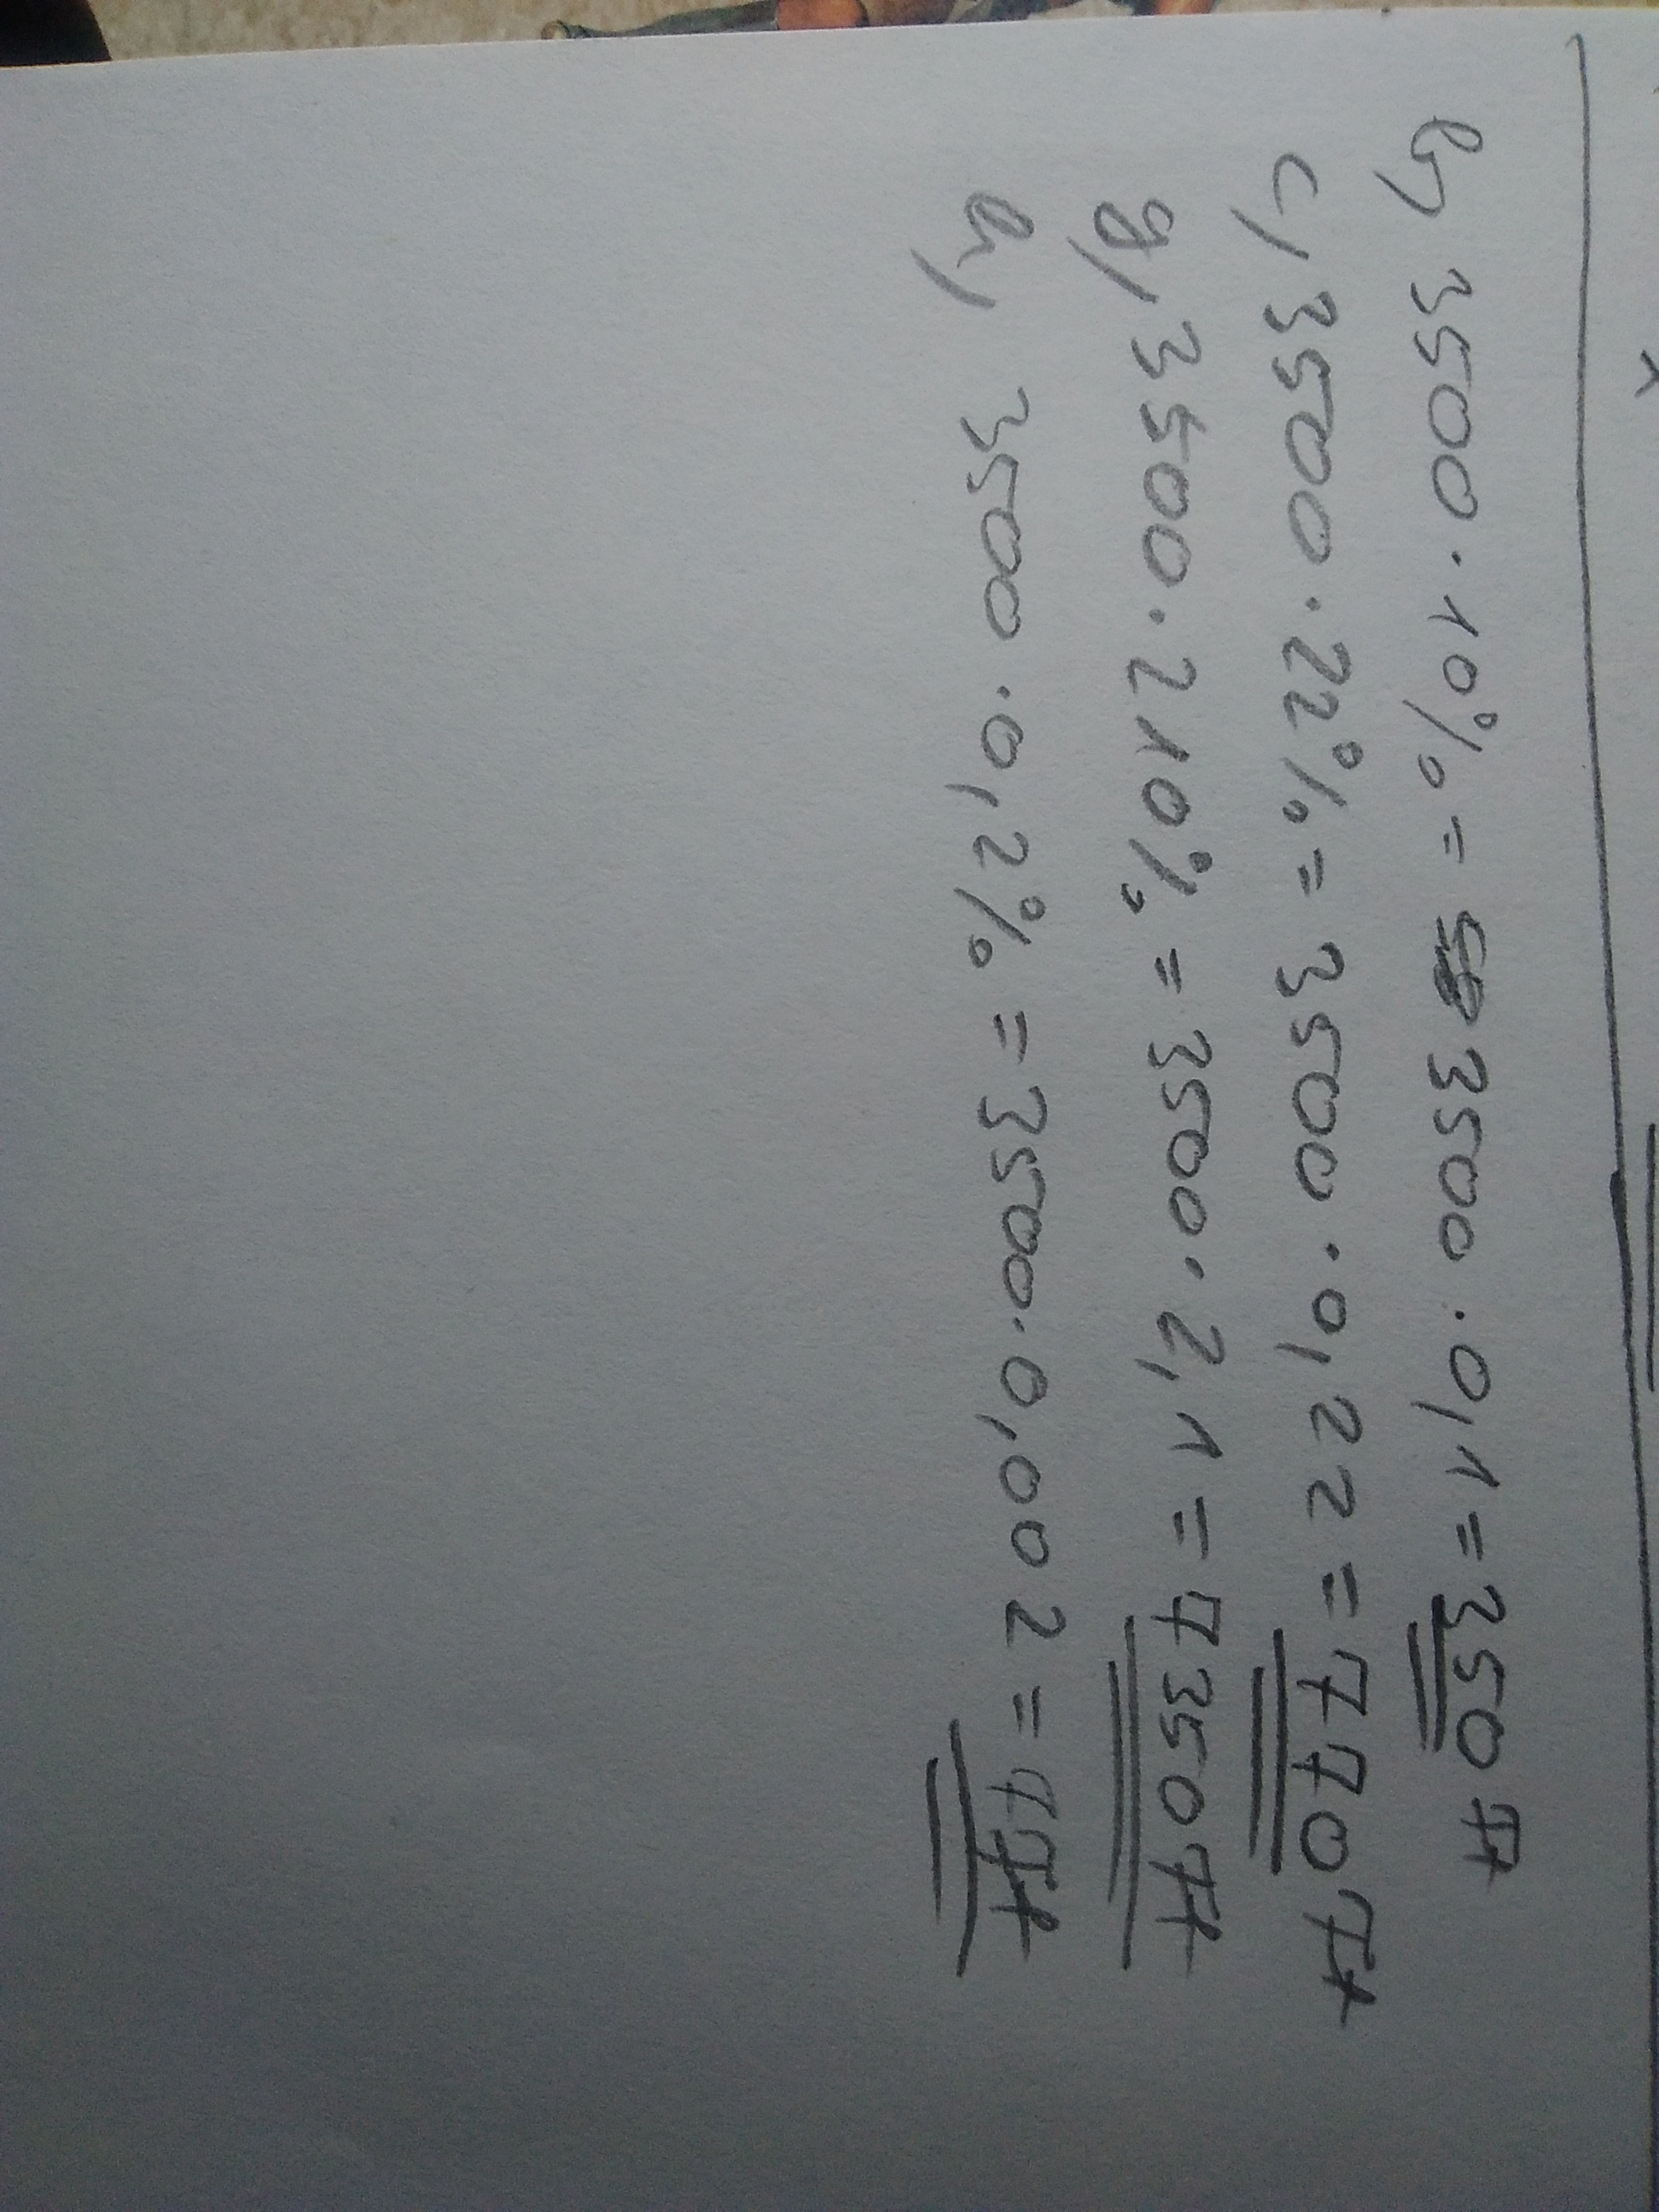 b) 3500 · 10% = 3500 · 0,1 = 350 Ft
c) 3500 · 22% = 3500 · 0,22 = 770 Ft
d) 3500 · 210% = 3500 · 2,1 = 7350 Ft
e) 3500 · 0,2% = 3500 · 0,002 = 7 Ft